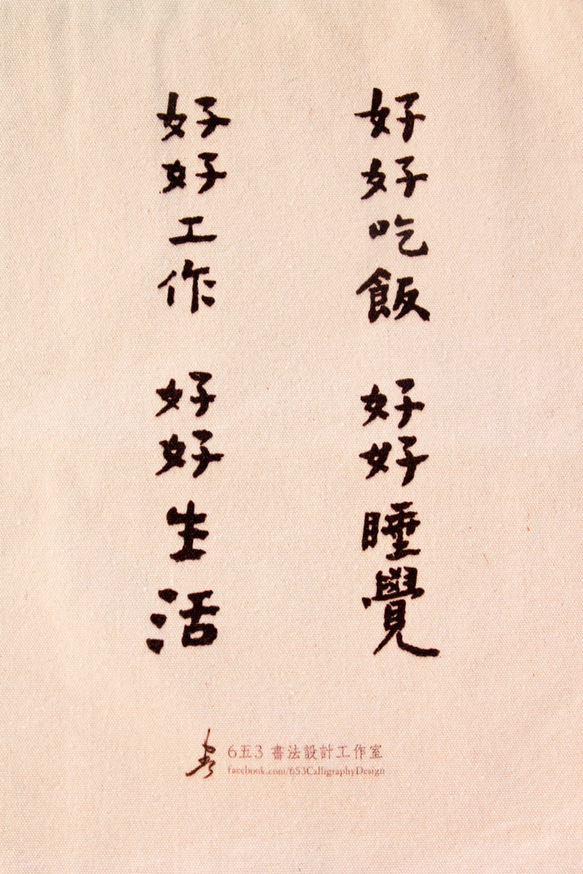 好好吃飯
好好睡覺
好好工作
好好生活
6五3 書法設計工作室
facebook.com/653CalligraphyDesign